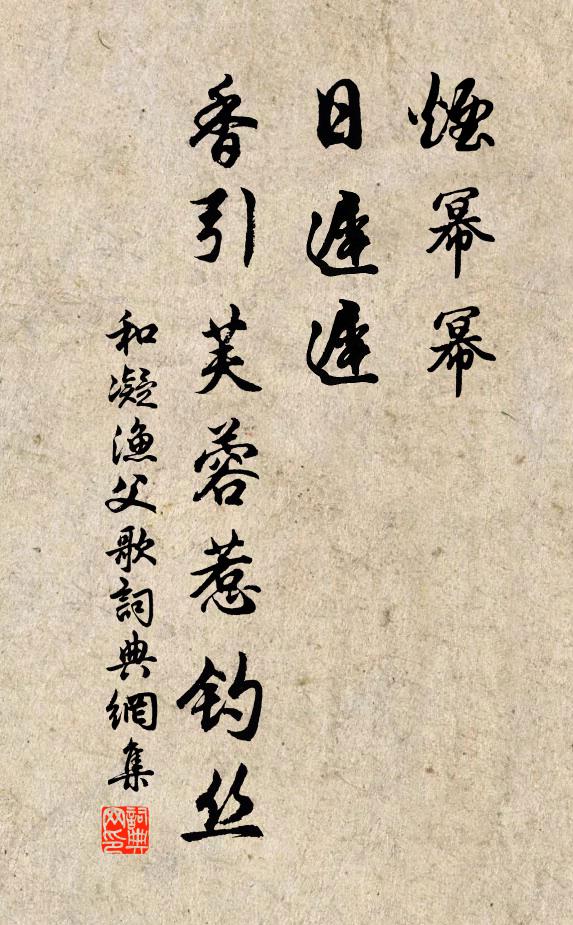 煙冪冪
日遲遲
香引芙蓉惹釣丝
和凝漁父歌詞典網集
詞典网印